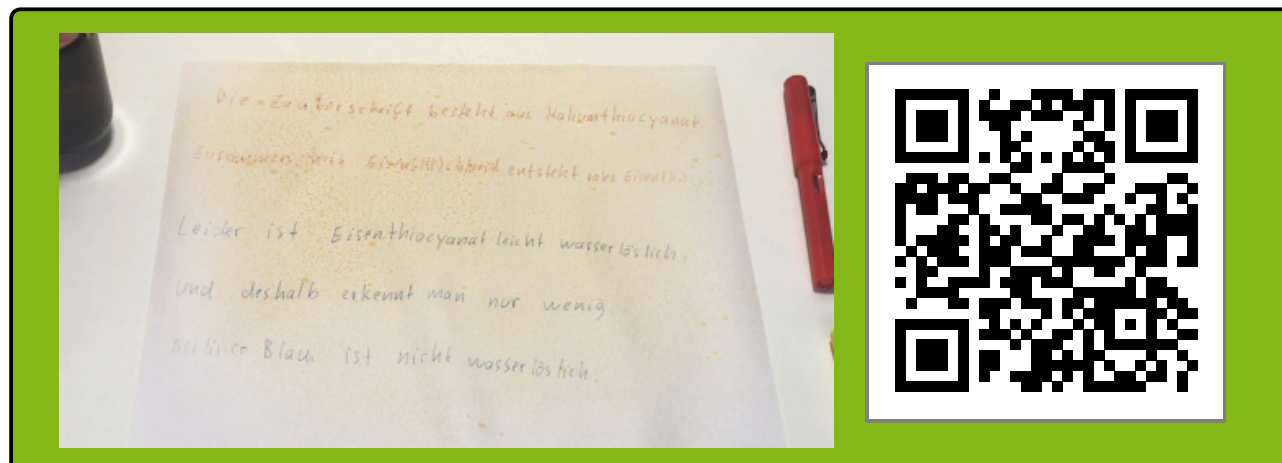 Die Zauberschrift besteht aus Kaliumthiocyanat.
Zusammen mit Eisen(III)chlorid entsteht
Leider ist Eisenthiocyanat leicht wasserlöslich,
und deshalb erkennt man nur wenig
Berliner Blau ist nicht wasserlöslich.